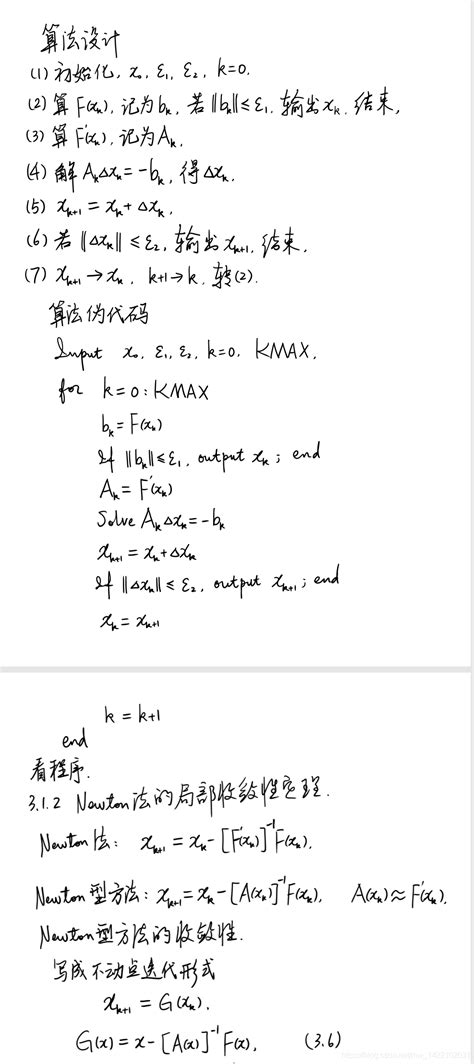 算法设计
(1) 初始化, x₀, ε₁, ε₂, k=0.
(2) 算F(xₖ), 记为bₖ, 若‖bₖ‖≤ε₁, 输出xₖ, 结束,
(3) 算F'(xₖ), 记为Aₖ.
(4) 解AₖΔxₖ=-bₖ, 得Δxₖ.
(5) xₖ₊₁=xₖ+Δxₖ,
(6) 若‖Δxₖ‖≤ε₂, 输出xₖ₊₁, 结束.
(7) xₖ₊₁→xₖ, k+1→k, 转(2).
算法伪代码
Input x₀, ε₁, ε₂, k=0, KMAX,
for k=0:KMAX
bₖ=F(xₖ)
If ‖bₖ‖≤ε₁, output xₖ; end
Aₖ=F'(xₖ)
Solve AₖΔxₖ=-bₖ
xₖ₊₁=xₖ+Δxₖ
If ‖Δxₖ‖≤ε₂, output xₖ₊₁; end
xₖ=xₖ₊₁
k=k+1
end
看程序.
3.1.2 Newton法的局部收敛性定理.
Newton法: xₖ₊₁=xₖ-[F'(xₖ)]⁻¹F(xₖ).
Newton型方法: xₖ₊₁=xₖ-[A(xₖ)]⁻¹F(xₖ), A(xₖ)≈F'(xₖ).
Newton型方法的收敛性.
写成不动点迭代形式
xₖ₊₁=G(xₖ),
G(x)=x-[A(x)]⁻¹F(x), (3.6)